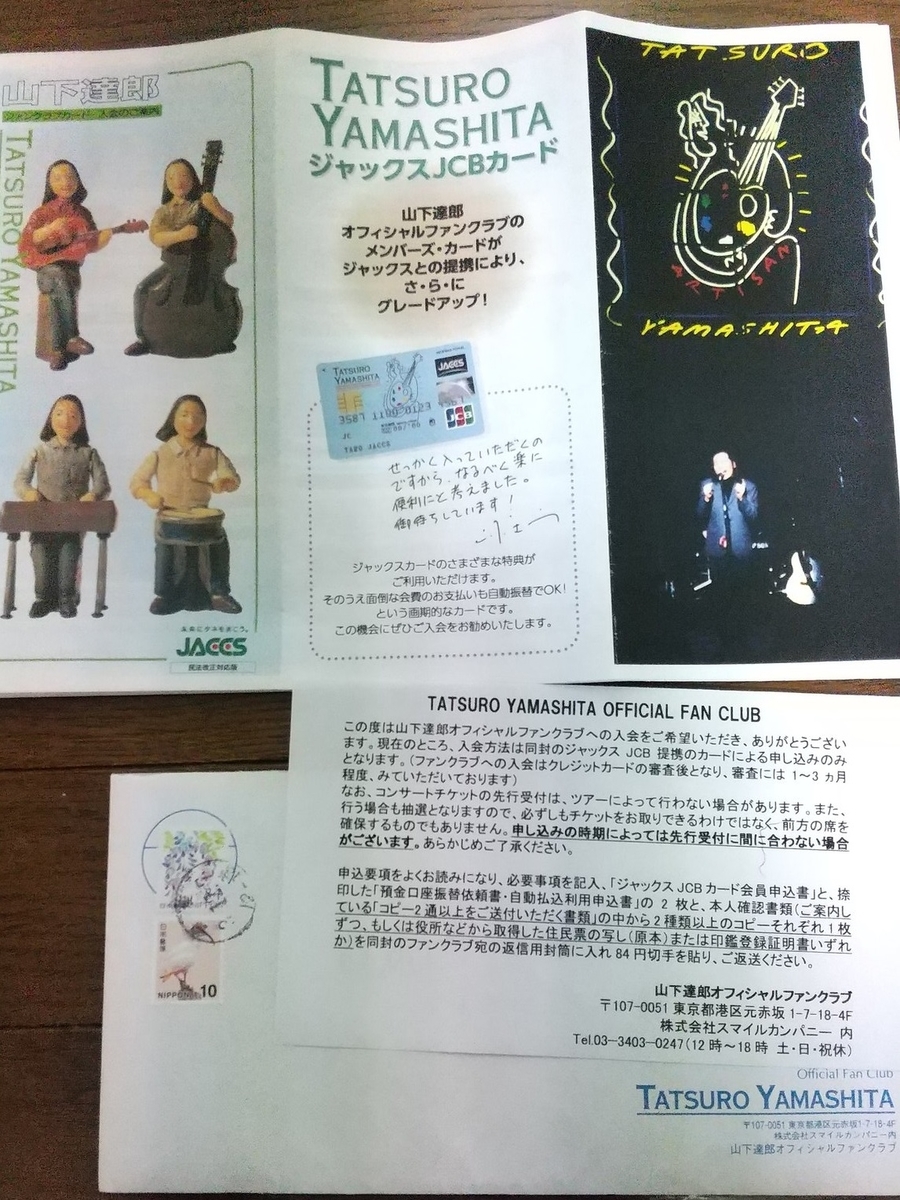 山下達郎
ファンクラブカード 入会のご案内
TATSURO YAMASHITA
JACCS
民法改正対応版
TATSURO
YAMASHITA
ジャックスJCBカード
山下達郎
オフィシャルファンクラブの
メンバーズ・カードが
ジャックスとの提携により、
さ・ら・に
グレードアップ!
TATSURO
YAMASHITA
JACCS
JCB
TARO JACCS
せっかく入っていただくの
ですから、なるべく楽に
便利にと考えました。
御待ちしています!
ジャックスカードのさまざまな特典が
ご利用いただけます。
そのうえ面倒な会費のお支払いも自動振替でOK!
という画期的なカードです。
この機会にぜひご入会をお勧めいたします。
TATSURO
ARTISAN
YAMASHITA
TATSURO YAMASHITA OFFICIAL FAN CLUB
この度は山下達郎オフィシャルファンクラブへの入会をご希望いただき、ありがとうござい
ます。現在のところ、入会方法は同封のジャックス JCB 提携のカードによる申し込みのみ
となります。(ファンクラブへの入会はクレジットカードの審査後となり、審査には 1~3 ヵ月
程度、みていただいております)
なお、コンサートチケットの先行受付は、ツアーによって行わない場合があります。また、
行う場合も抽選となりますので、必ずしもチケットをお取りできるわけではなく、前方の席を
確保するものでもありません。申し込みの時期によっては先行受付に間に合わない場合
がございます。あらかじめご了承ください。
申込要項をよくお読みになり、必要事項を記入、「ジャックス JCB カード会員申込書」と、捺
印した「預金口座振替依頼書・自動払込利用申込書」の 2 枚と、本人確認書類(ご案内し
ている「コピー2通以上をご送付いただく書類」の中から2種類以上のコピーそれぞれ1枚
ずつ、もしくは役所などから取得した住民票の写し(原本)または印鑑登録証明書いずれ
か)を同封のファンクラブ宛の返信用封筒に入れ 84 円切手を貼り、ご返送ください。
山下達郎オフィシャルファンクラブ
〒107-0051 東京都港区元赤坂 1-7-18-4F
株式会社スマイルカンパニー 内
Tel.03-3403-0247(12 時~18 時 土・日・祝休)
日本郵便
NIPPON 10
Official Fan Club
TATSURO YAMASHITA
〒107-0051 東京都港区元赤坂1-7-18-4F
株式会社スマイルカンパニー内
山下達郎オフィシャルファンクラブ